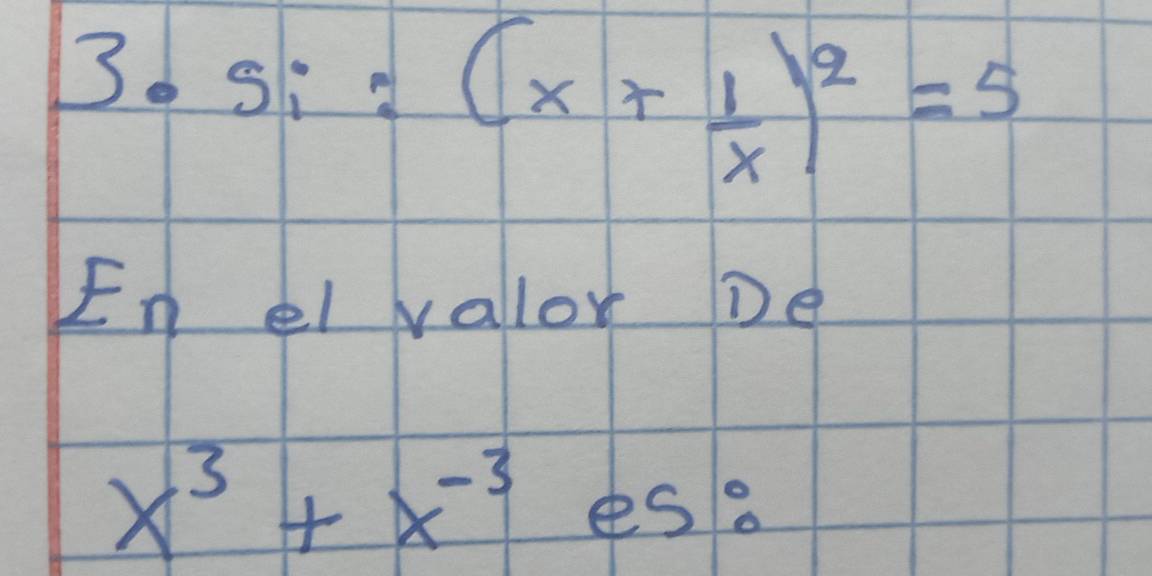 3. Si : (x + 1/x)² = 5
En el valor De
x³ + x⁻³ es: